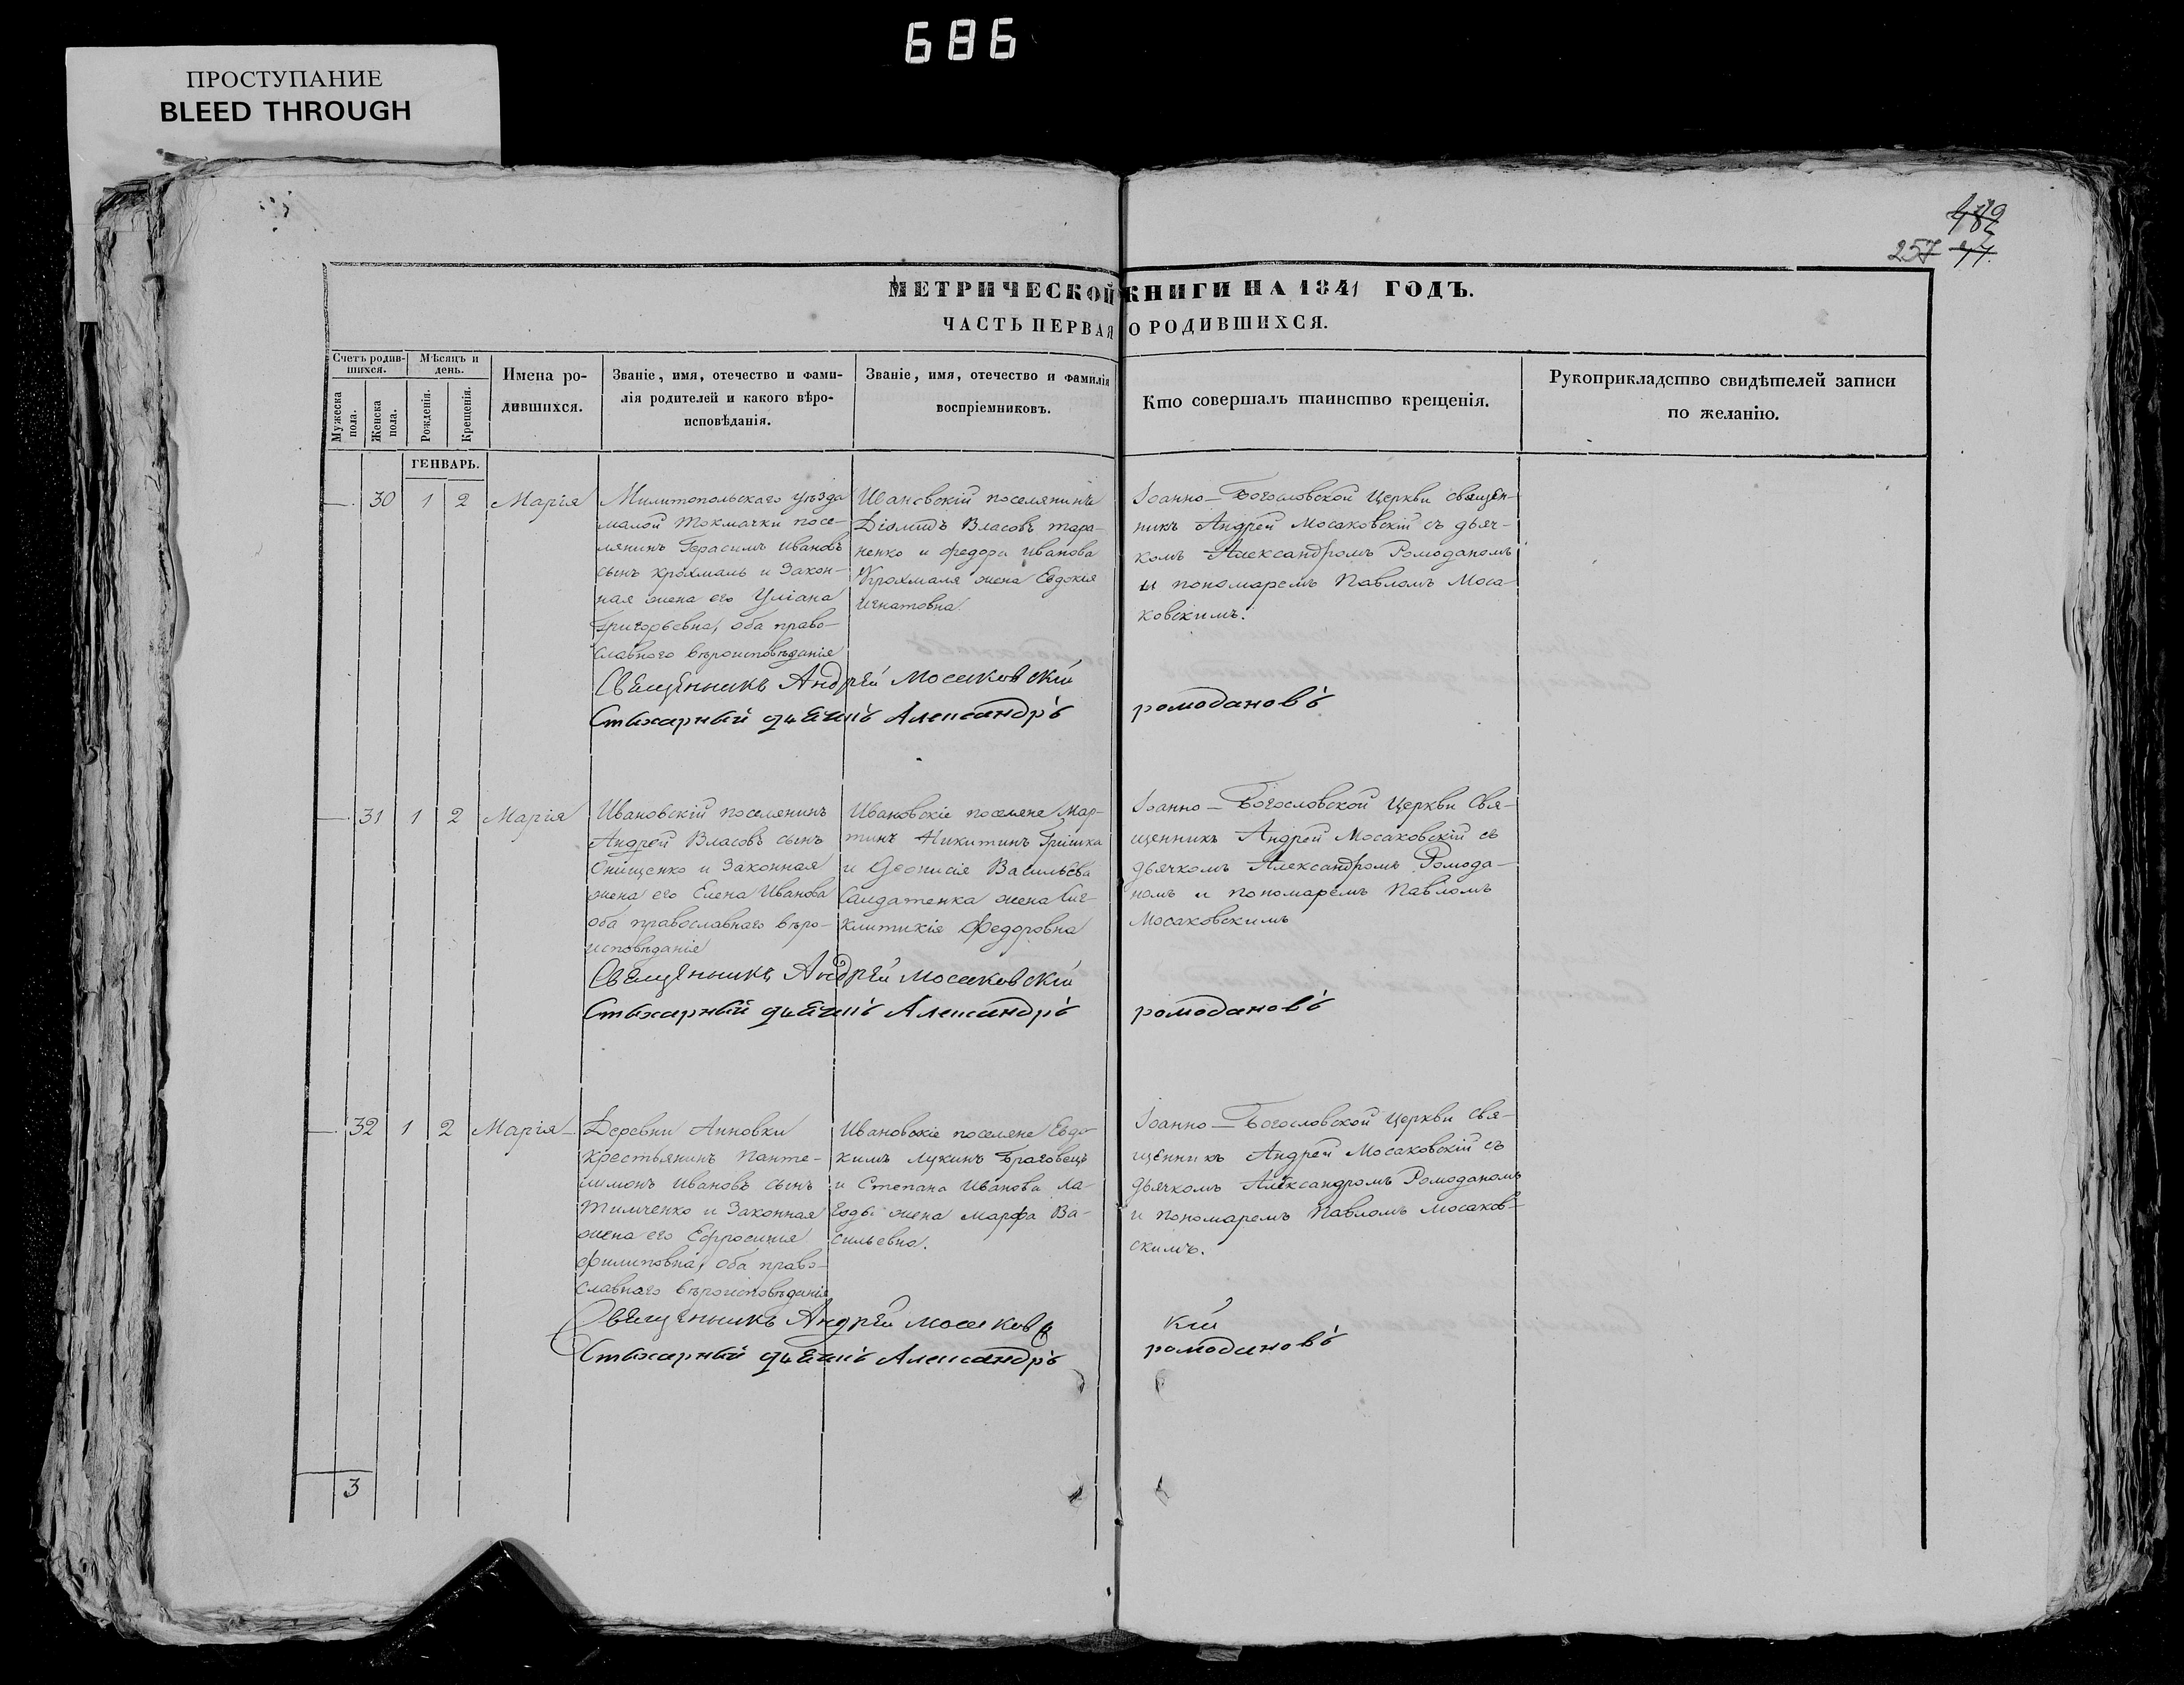 686
ПРОСТУПАНИЕ
BLEED THROUGH
257
МЕТРИЧЕСКОЙ КНИГИ НА 1841 ГОДЪ.
ЧАСТЬ ПЕРВАЯ О РОДИВШИХСЯ.
Счетъ родив-
шихся.
Мужеска
пола.
Женска
пола.
Мѣсяцъ и
день.
Рожденія.
Крещенія.
Имена ро-
дившихся.
Званіе, имя, отечество и фами-
лія родителей и какого вѣро-
исповѣданія.
Званіе, имя, отечество и фамилія
воспріемниковъ.
Кто совершалъ таинство крещенія.
Рукоприкладство свидѣтелей записи
по желанію.
ГЕНВАРЬ.
30 1 2 Марія
Милитопольскаго уѣзда
малой Токмачки посе-
лянинъ Герасимъ Ивановъ
сынъ Крохмаль и Закон-
ная жена его Уліана
Григорьевна, оба право-
славного вѣроисповѣданія
Ивановскій поселянинъ
Діомидъ Власовъ тара-
ненко и федора Иванова
Крохмаля жена Евдокія
Игнатовна
Іоанно-Богословской Церкви священ-
никъ Андрей Мосаковскій съ дьяч-
комъ Александромъ Ромоданомъ
и пономаремъ Павломъ Моса-
ковскимъ.
Священникъ Андрей Мосаковскій
Стихарный дьячикъ Александръ ромодановъ
31 1 2 Марія
Ивановскій поселянинъ
Андрей Власовъ сынъ
Онищенко и Законная
жена его Елена Иванова
оба православнаго вѣро-
исповѣданія
Ивановскіе поселяне Мар-
тинъ Никитинъ Гришка
и Деонисія Васильева
Салдатенка жена Син-
клитикія Федоровна
Іоанно-Богословской Церкви Свя-
щенникъ Андрей Мосаковскій съ
дьячкомъ Александромъ Ромода-
номъ и пономаремъ Павломъ
Мосаковскимъ
Священникъ Андрей Мосаковскій
Стихарный дьячикъ Александръ ромодановъ
32 1 2 Марія
Деревни Анновки
Крестьянинъ Панте-
лимонъ Ивановъ сынъ
Тимченко и Законная
жена его Ефросинія
филиповна, оба право-
славнаго вѣроисповѣданія
Ивановскіе поселяне Евдо-
кимъ Лукинъ Браговецъ
и Степана Иванова Ла-
Езды жена Марфа Ва-
сильевна.
Іоанно-Богословской Церкви Свя-
щенникъ Андрей Мосаковскій съ
дьячкомъ Александромъ Ромоданомъ
и пономаремъ Павломъ Мосаков-
скимъ.
Священникъ Андрей Мосаковскій
Стихарный дьячикъ Александръ ромодановъ
3